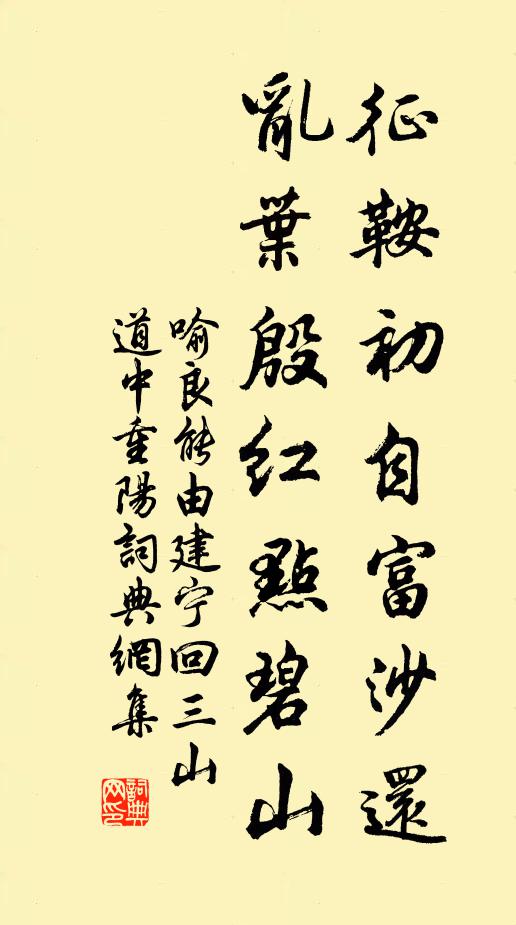 征鞍初自富沙還
亂葉殷紅點碧山
喻良能由建宁回三山
道中重陽詞典網集
詞典
网印